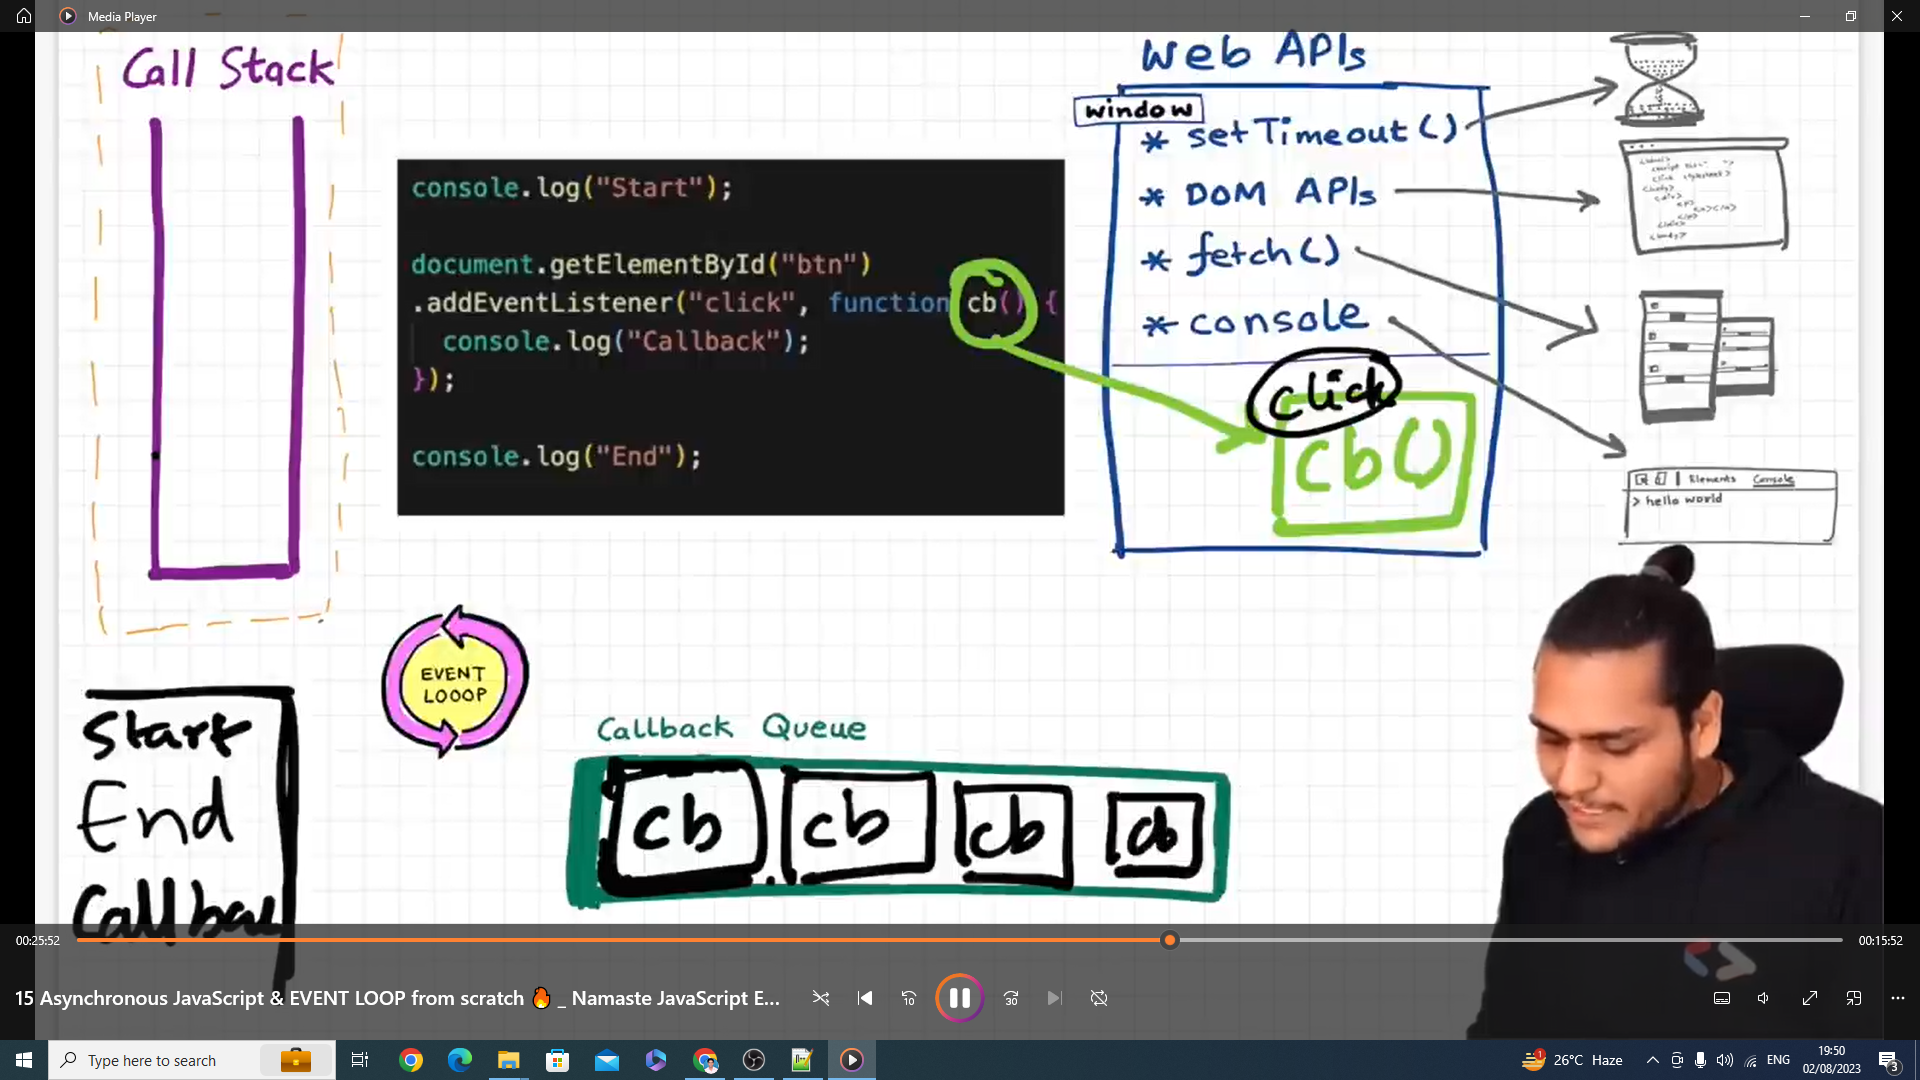 Media Player
Call Stack
console.log("Start");
document.getElementById("btn")
.addEventListener("click", function cb() {
console.log("Callback");
});
console.log("End");
Web APIs
window
* setTimeout()
* DOM APIs
* fetch()
* console
click
cb()
Elements Console
> hello world
EVENT
LOOOP
Start
End
Callbac
Callback Queue
cb cb cb cb
00:25:52
00:15:52
15 Asynchronous JavaScript & EVENT LOOP from scratch 🔥 _ Namaste JavaScript E...
10
30
Type here to search
1
26°C Haze
ENG
19:50
02/08/2023
3